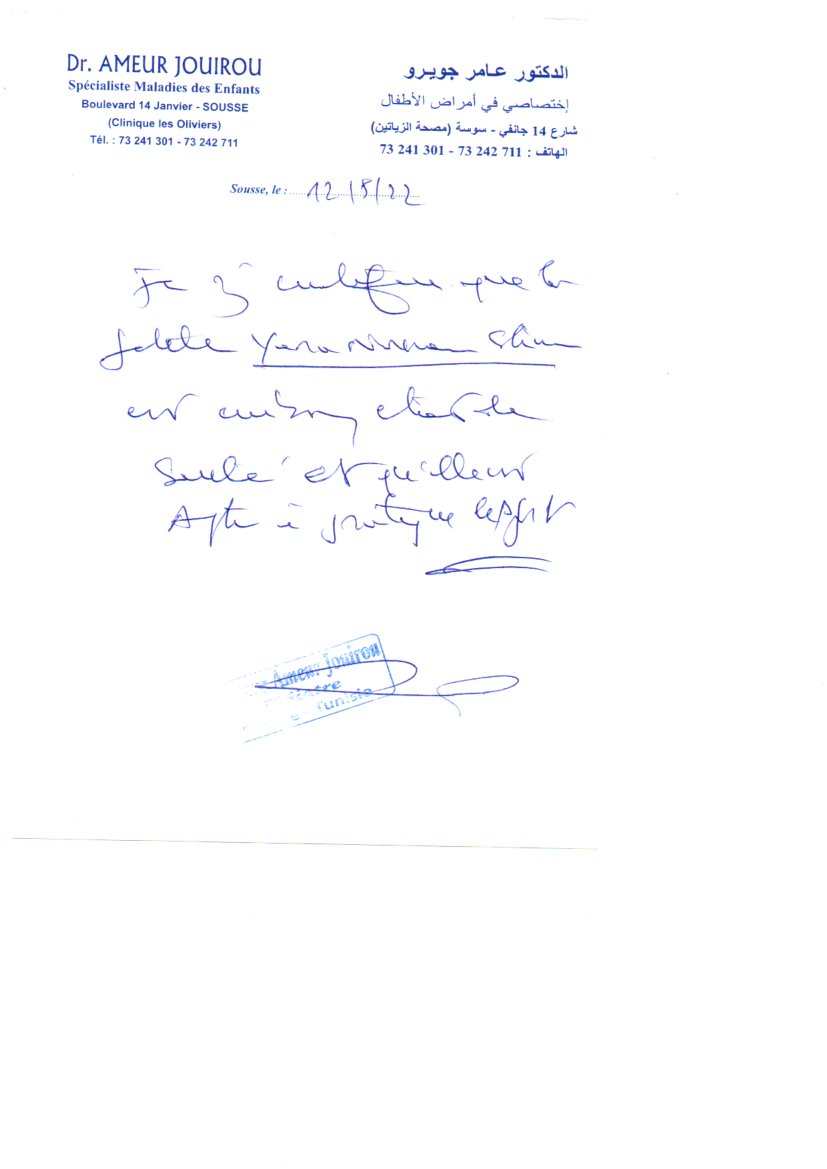 Dr. AMEUR JOUIROU
Spécialiste Maladies des Enfants
Boulevard 14 Janvier - SOUSSE
(Clinique les Oliviers)
Tél. : 73 241 301 - 73 242 711
الدكتور عـامر جويـرو
إختصاصي في أمراض الأطفال
شارع 14 جانفي - سوسة (مصحة الزياتين)
الهاتف : 711 242 73 - 301 241 73
Sousse, le : 12/5/22
Je que la
Yara
est en bon état de
Santé et qu'elle est
Apte à pratiquer le sport
Ameur Jouirou
Tunisie